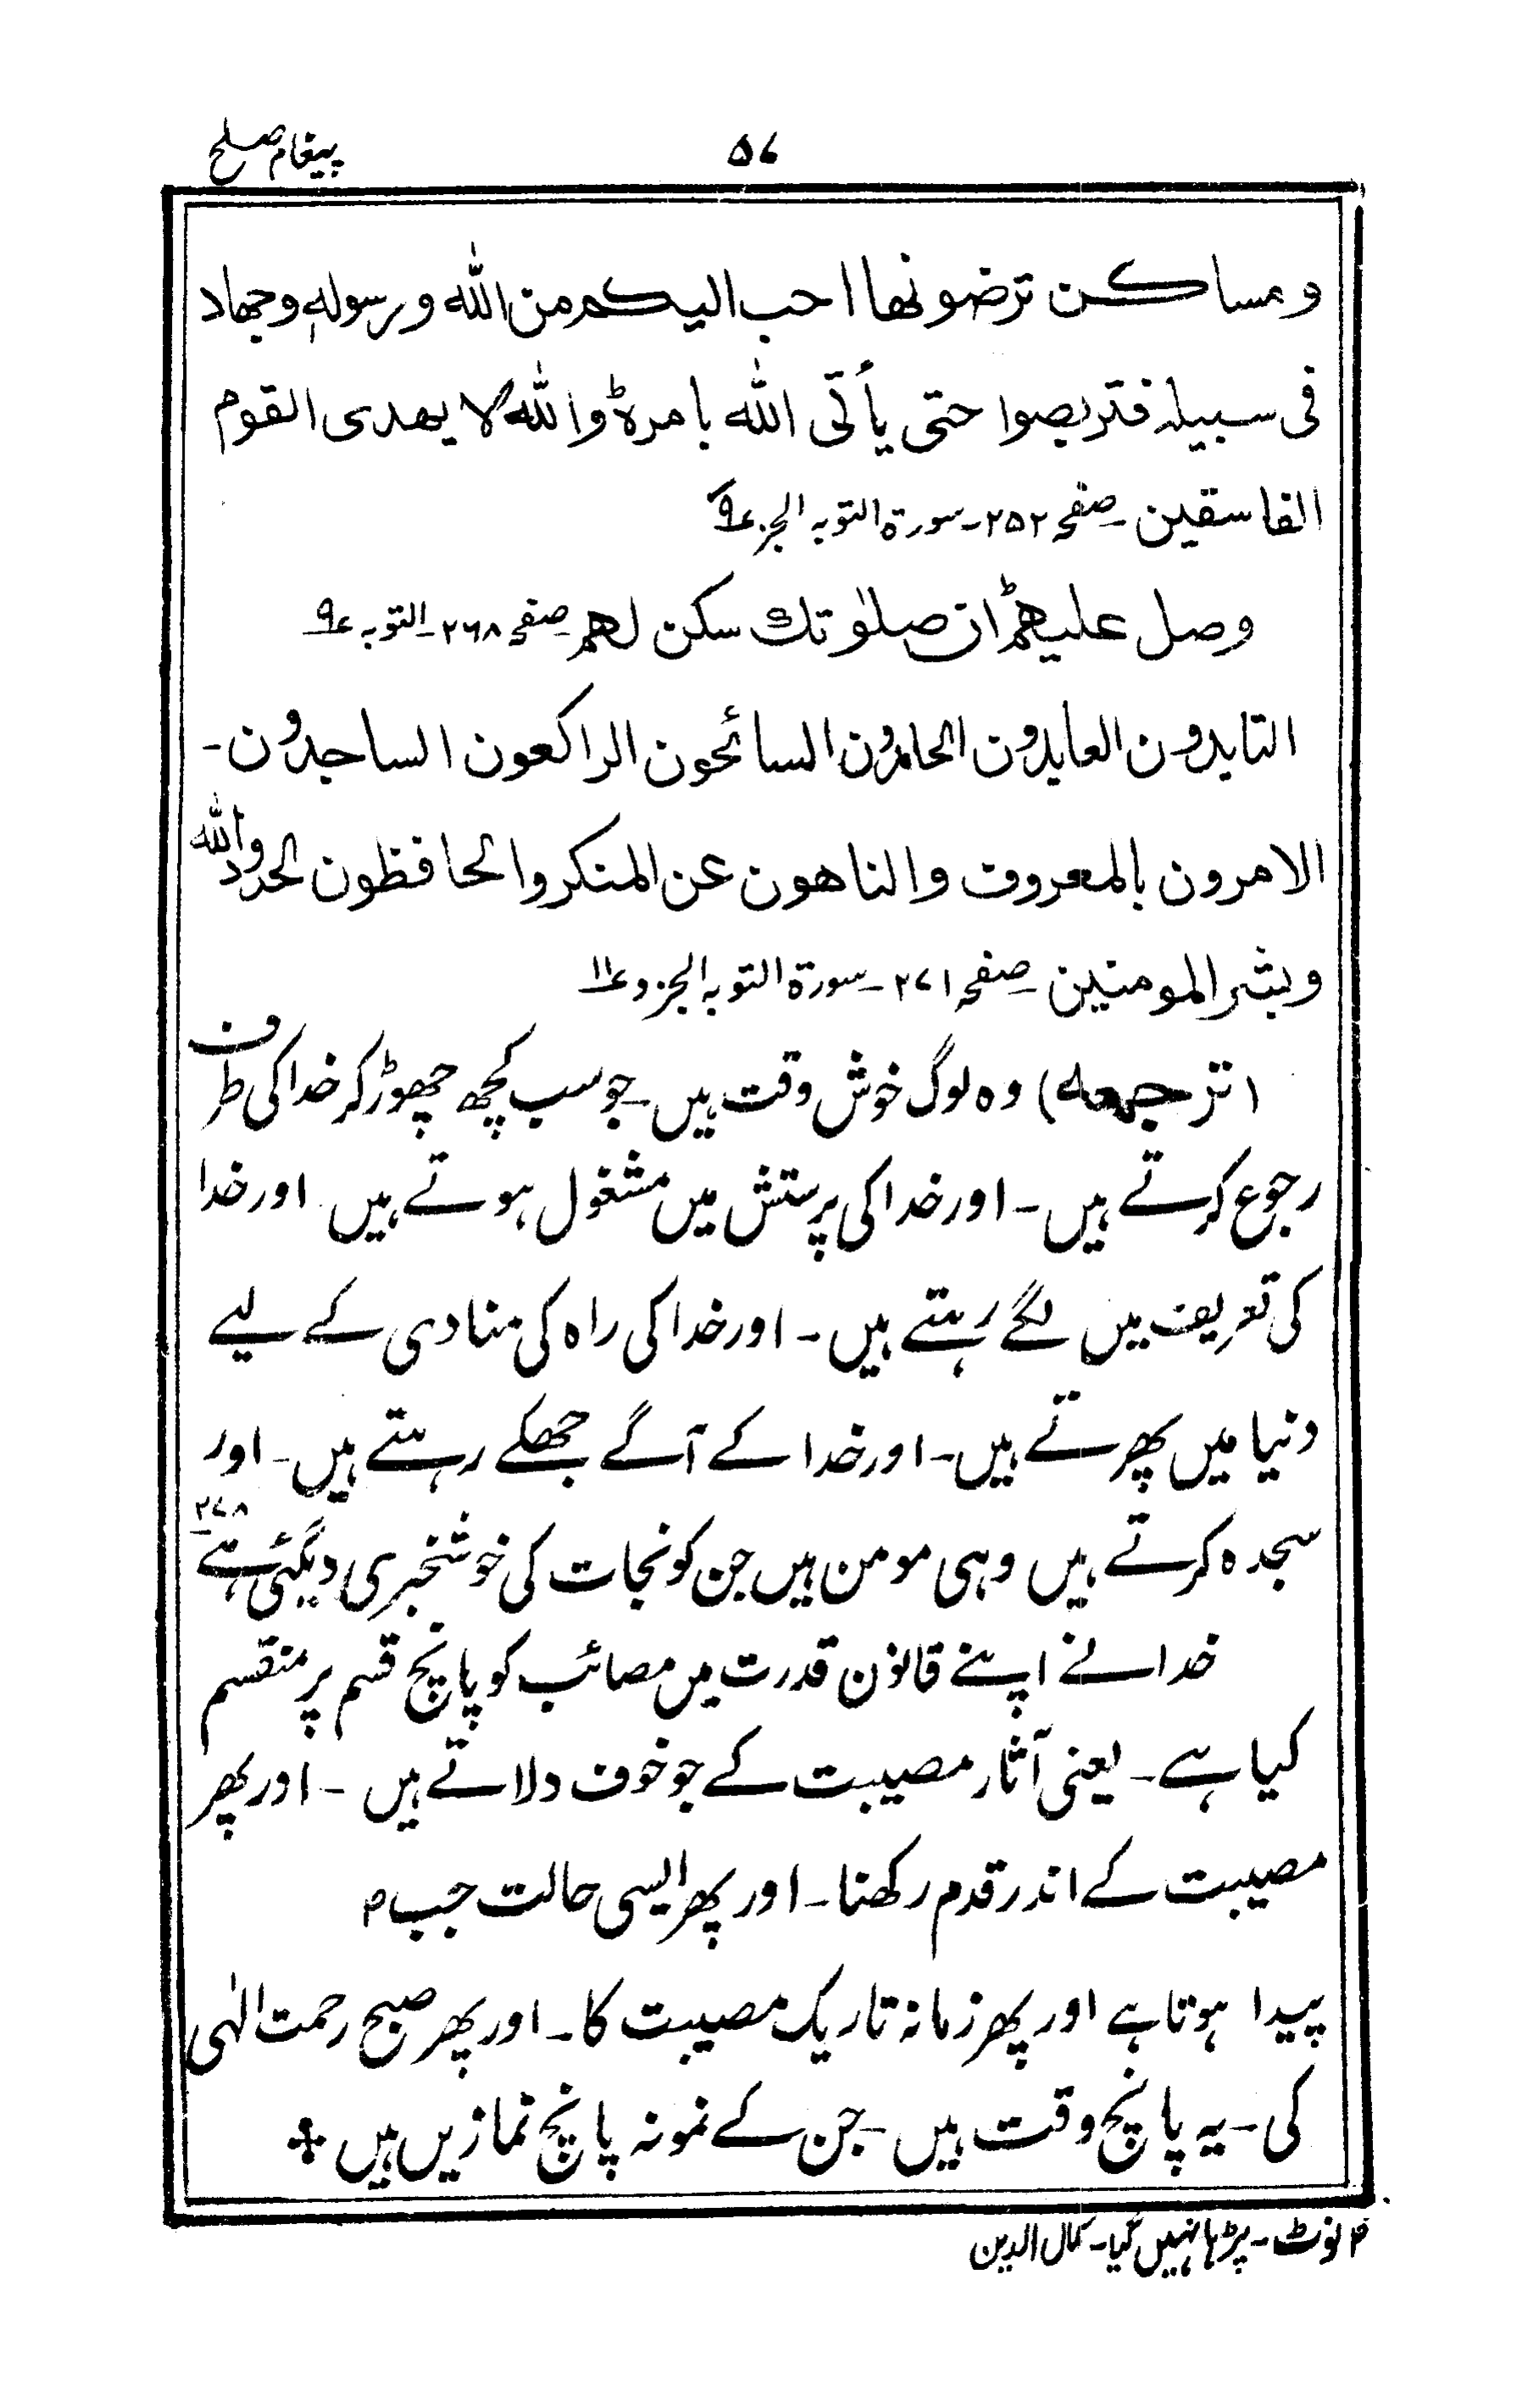 پیغام صلح
۵۷
ومساکن ترضونها احب الیکم من الله ورسوله وجهاد
فی سبیله فتربصوا حتی یأتی الله بامره ؕ والله لا یهدی القوم
الفاسقین ۔ صفحہ ۲۵۲ ۔ سورۃ التوبہ الجز ۹
وصل علیهم ؕ ان صلوٰتك سكن لهم ۔ صفحہ ۲۶۸ ۔ التوبہ ۹
التایبون العابدون الحامدون السائحون الراکعون الساجدون ۔
الامرون بالمعروف والناهون عن المنکر والحافظون لحدود الله
وبشر المومنین ۔ صفحہ ۲۷۱ ۔ سورۃ التوبہ الجزو ۱۱
(ترجمہ) وہ لوگ خوش وقت ہیں ۔ جو سب کچھ چھوڑ کر خدا کی طرف
رجوع کرتے ہیں ۔ اور خدا کی پرستش میں مشغول ہوتے ہیں ۔ اور خدا
کی تعریف میں لگے رہتے ہیں ۔ اور خدا کی راہ کی منادی کے لیے
دنیا میں پھرتے ہیں ۔ اور خدا کے آگے جھکے رہتے ہیں ۔ اور
سجدہ کرتے ہیں وہی مومن ہیں جن کو نجات کی خوشخبری دیگئی ہے ۲۷۸
خدا نے اپنے قانون قدرت میں مصائب کو پانچ قسم پر منقسم
کیا ہے ۔ یعنی آثار مصیبت کے جو خوف دلاتے ہیں ۔ اور پھر
مصیبت کے اندر قدم رکھنا ۔ اور پھر ایسی حالت جب
پیدا ہوتا ہے اور پھر زمانہ تاریک مصیبت کا ۔ اور پھر صبح رحمت الٰہی
کی ۔ یہ پانچ وقت ہیں ۔ جن کے نمونہ پانچ نمازیں ہیں ÷
نوٹ ۔ پڑہا نہیں گیا ۔ کمال الدین